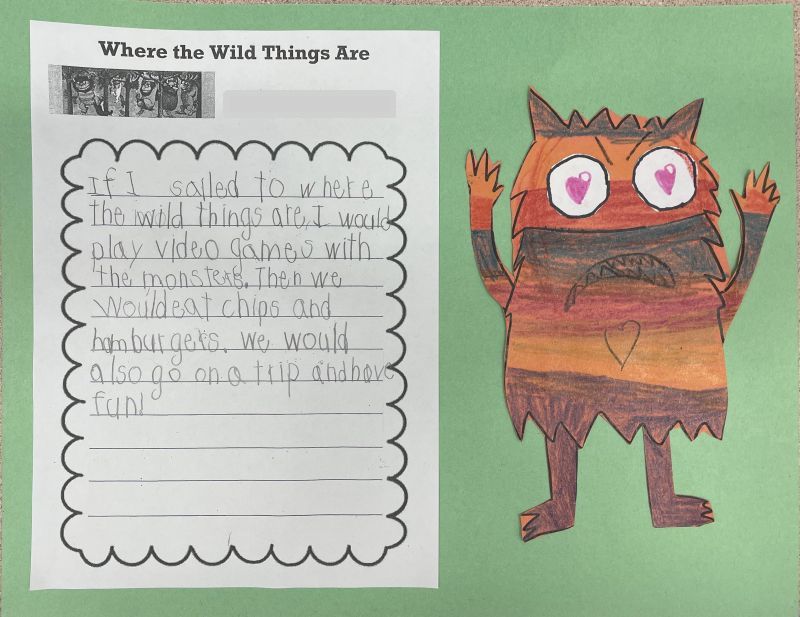 Where the Wild Things Are
If I sailed to where
the wild things are, I would
play video games with
the monsters. Then we
would eat chips and
hamburgers. We would
also go on a trip and have
fun!